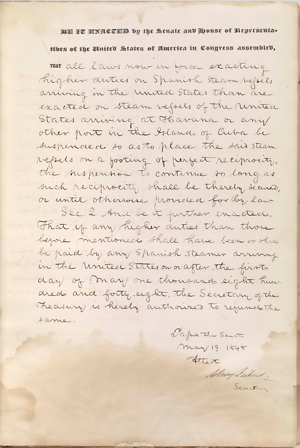 BE IT ENACTED by the Senate and House of Representa-
tives of the United States of America in Congress assembled,
THAT all laws now in force exacting
higher duties on Spanish Steam vessels
arriving in the United States than are
exacted on steam vessels of the United
States arriving at Havana or any
other port in the Island of Cuba be
suspended so as to place the said steam
vessels on a footing of perfect reciprocity,
the suspension to continue so long as
such reciprocity shall be thereby secured,
or until otherwise provided for by law
Sec. 2 And be it further enacted,
That if any higher duties than those
before mentioned shall have been or shall
be paid by any Spanish Steamer arriving
in the United States on or after the first
day of May one thousand eight hun-
dred and forty eight, the Secretary of the
Treasury is hereby authorized to refund the
same.
May 19 1848
Attest